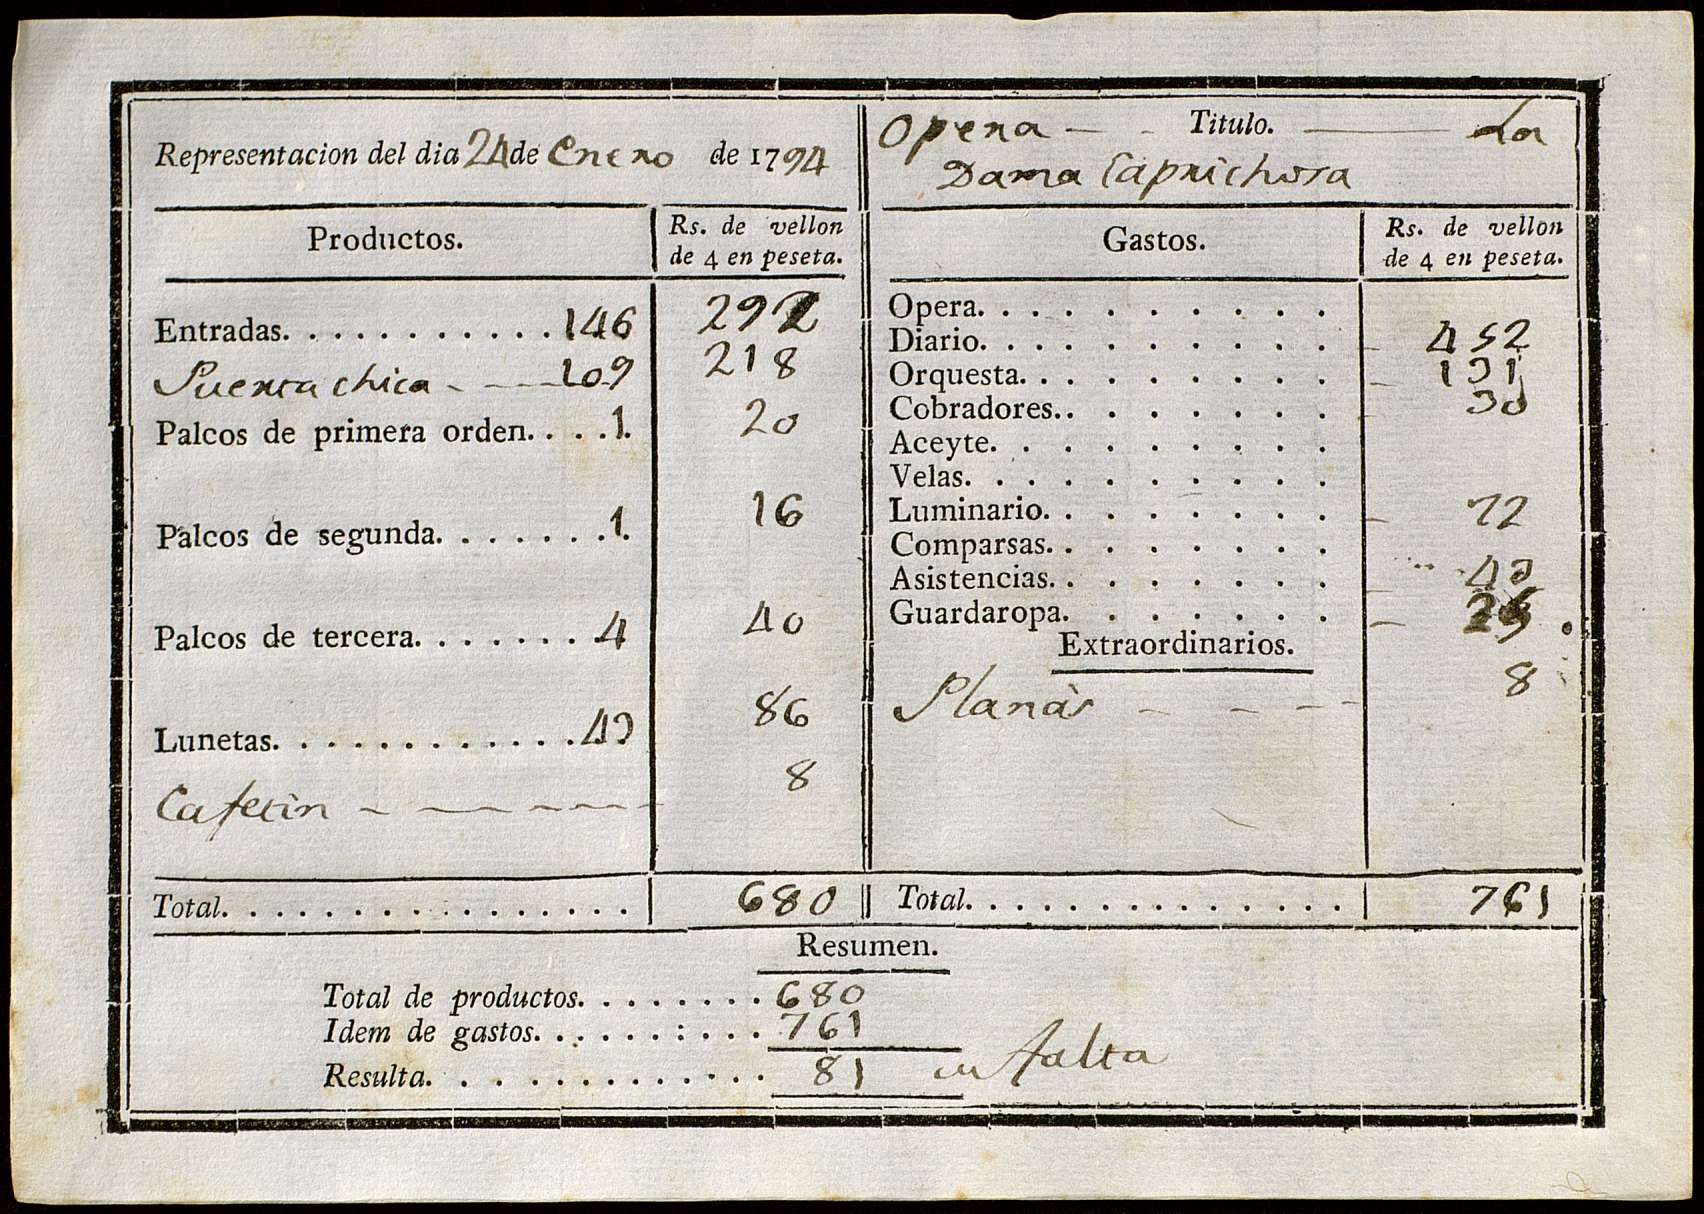 Representacion del dia 24 de Enero de 1794
Opera - - Titulo. — La
Dama Caprichosa
Productos. Rs. de vellon
de 4 en peseta.
Gastos. Rs. de vellon
de 4 en peseta.
Entradas. . . . . . . . . . . 146 292
Puerta chica - - 109 218
Palcos de primera orden. . . . 1. 20
Palcos de segunda. . . . . . . 1. 16
Palcos de tercera. . . . . . . 4 40
Lunetas. . . . . . . . . . . . 43 86
Cafetin - - - - - - 8
Total. . . . . . . . . . . . . . . . 680
Opera. . . . . . . . . .
Diario. . . . . . . . . . - 452
Orquesta. . . . . . . . . - 131
Cobradores. . . . . . . . - 30
Aceyte. . . . . . . . .
Velas. . . . . . . . . .
Luminario. . . . . . . . - 72
Comparsas. . . . . . . .
Asistencias. . . . . . . . - 43
Guardaropa. . . . . . . - 25
Extraordinarios.
Planàs - - - - 8
Total. . . . . . . . . . . . . . . 761
Resumen.
Total de productos. . . . . . . . 680
Idem de gastos. . . . . . : . . . 761
Resulta. . . . . . . . . . . . . 81 en falta